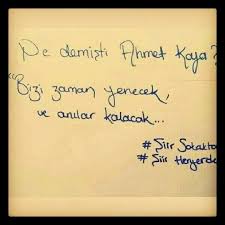 Ne demişti Ahmet Kaya?
"Bizi zaman yenecek,
ve anılar kalacak...
# Şiir Sokakta
# Şiir Heryerde